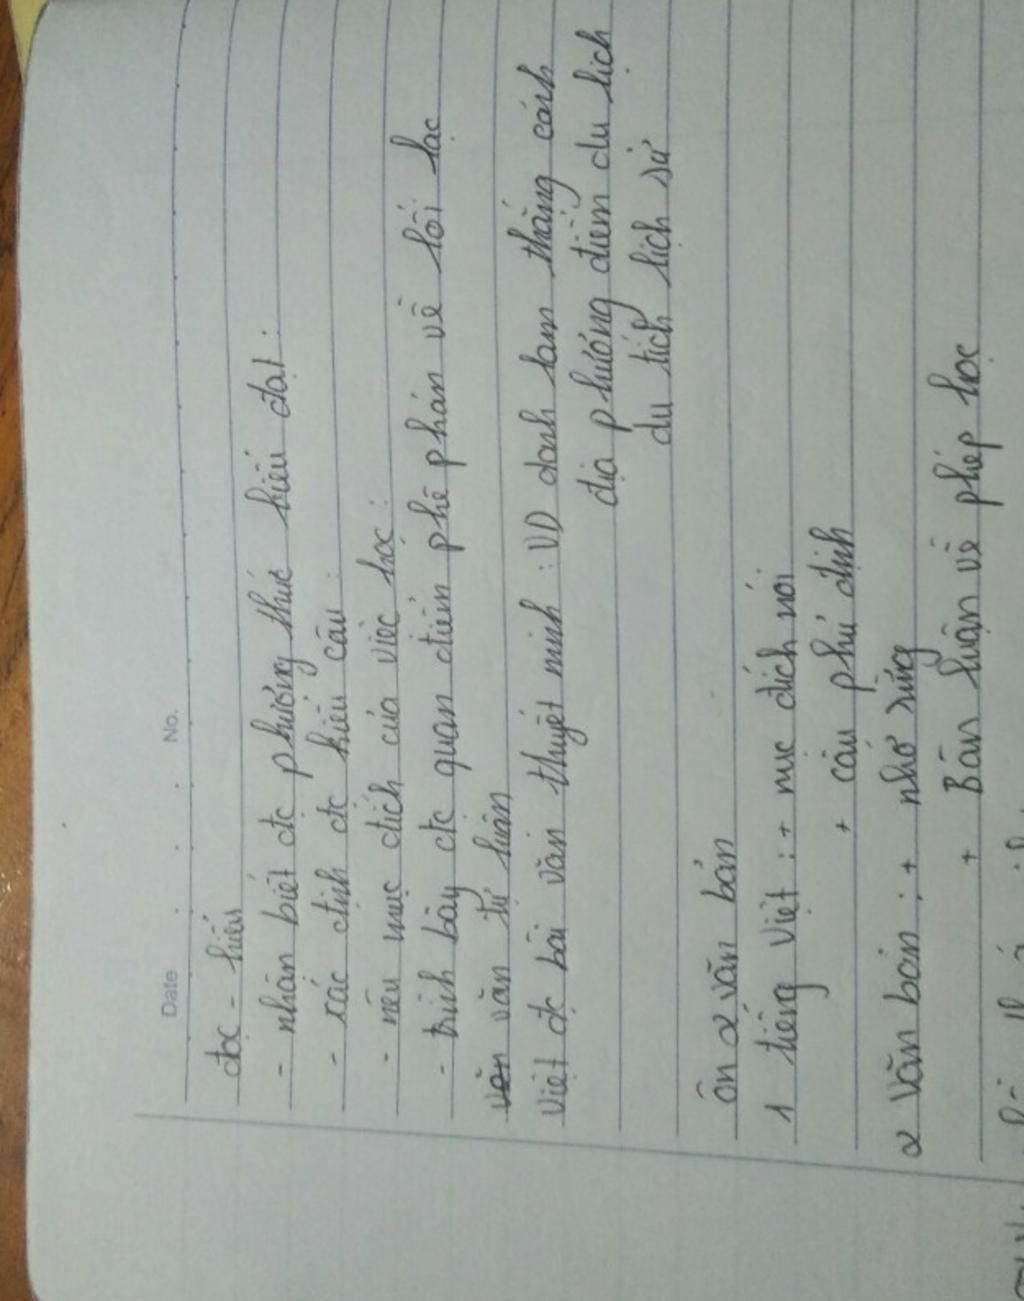 Date No.
đọc - hiểu
- nhận biết đc phương thức biểu đạt :
- xác định đc kiểu câu :
- nêu mục đích của việc học :
- trình bày đc quan điểm phê phán về lối học
văn tự luận
Viết đc bài văn thuyết minh : VD danh lam thắng cảnh
địa phương điểm du lịch
du tích lịch sử
ôn 2 văn bản
1 tiếng Việt : + mục đích nói
+ câu phủ định
2 Văn bản : + nhớ rừng
+ Bàn luận về phép học